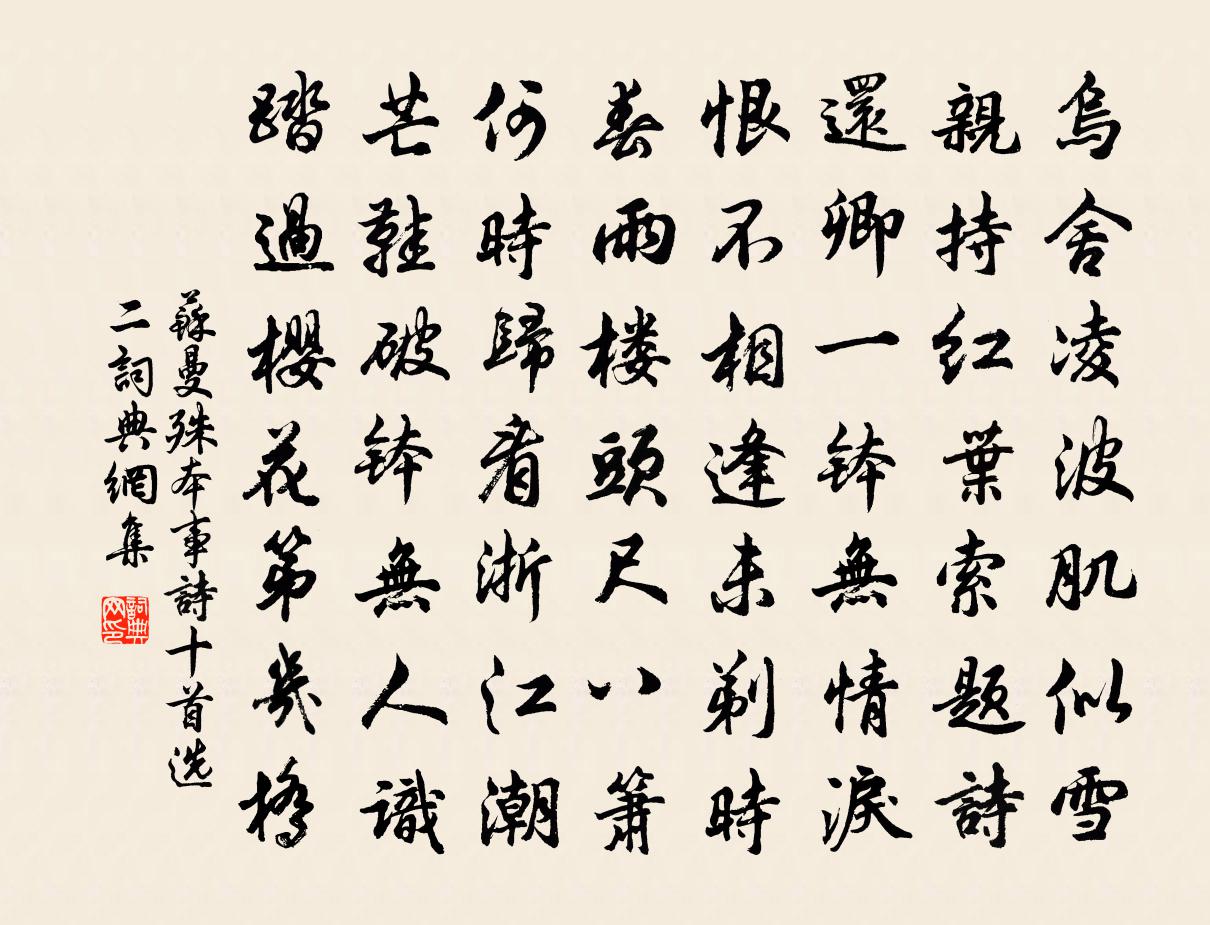 烏舍凌波肌似雪
親持紅葉索題詩
還卿一鉢無情淚
恨不相逢未剃時
春雨楼頭尺八簫
何時歸看浙江潮
芒鞋破鉢無人識
踏過櫻花第幾橋
蘇曼殊本事詩十首选
二詞典網集
詞典
网印